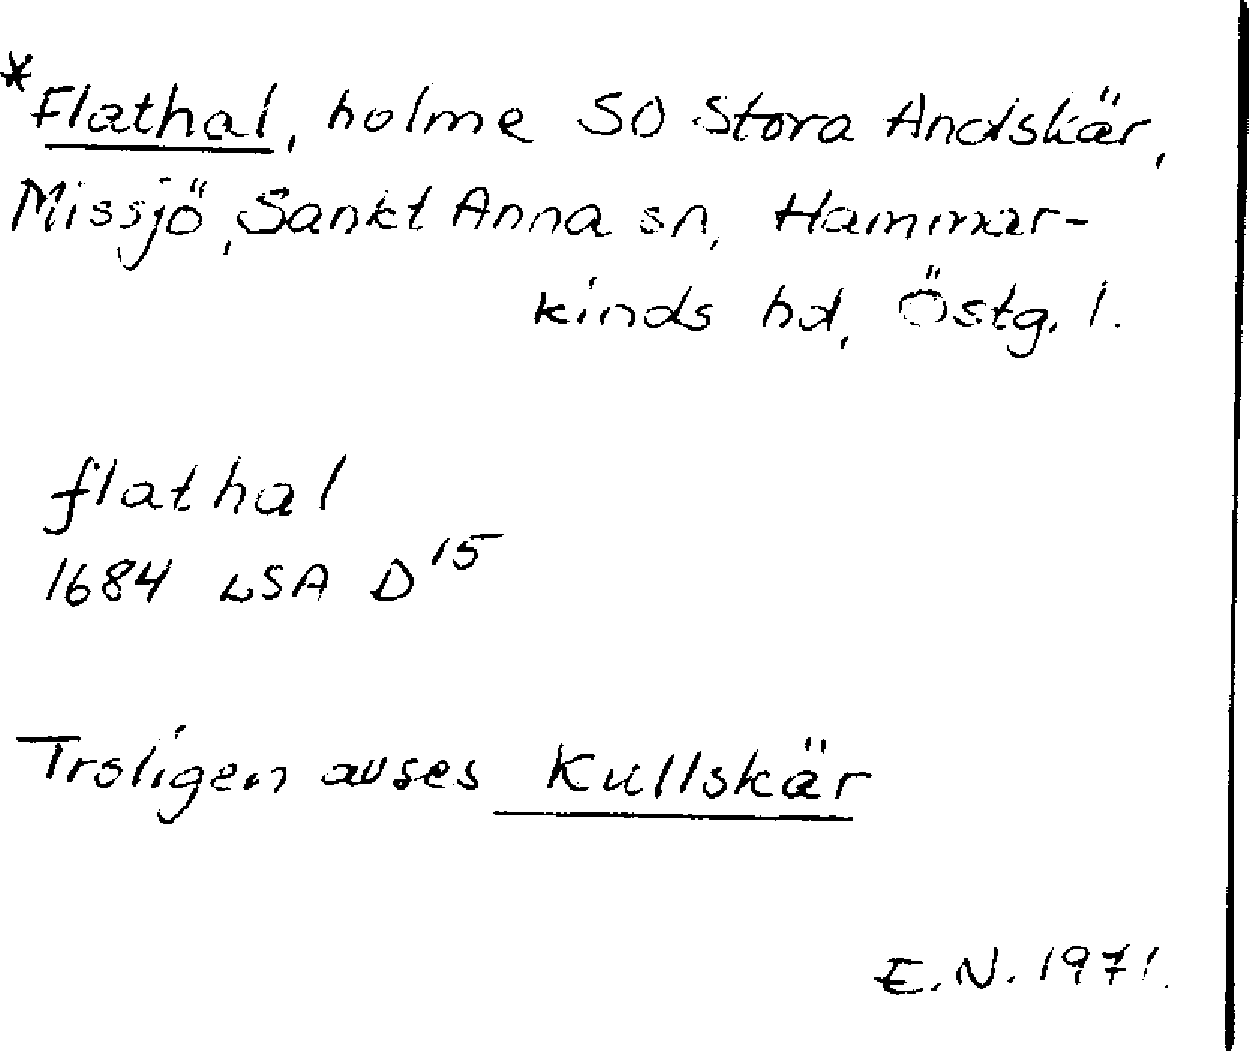 *Flathal, holme SO Stora Andskär,
Missjö, Sankt Anna sn, Hammar-
kinds hd, Östg. l.
flathal
1684 LSA D15
Troligen avses Kullskär
E.N. 1971.